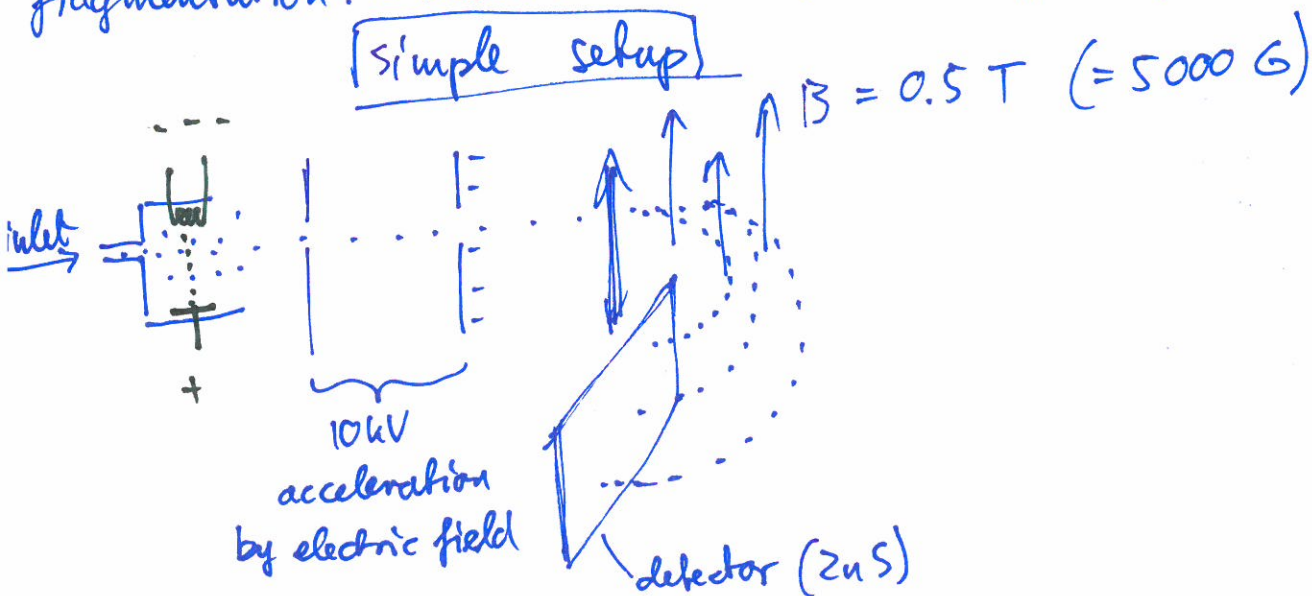 fragmentation.
simple setup
B = 0.5 T (= 5000 G)
- - -
inlet
+
10 kV
acceleration
by electric field
detector (ZnS)